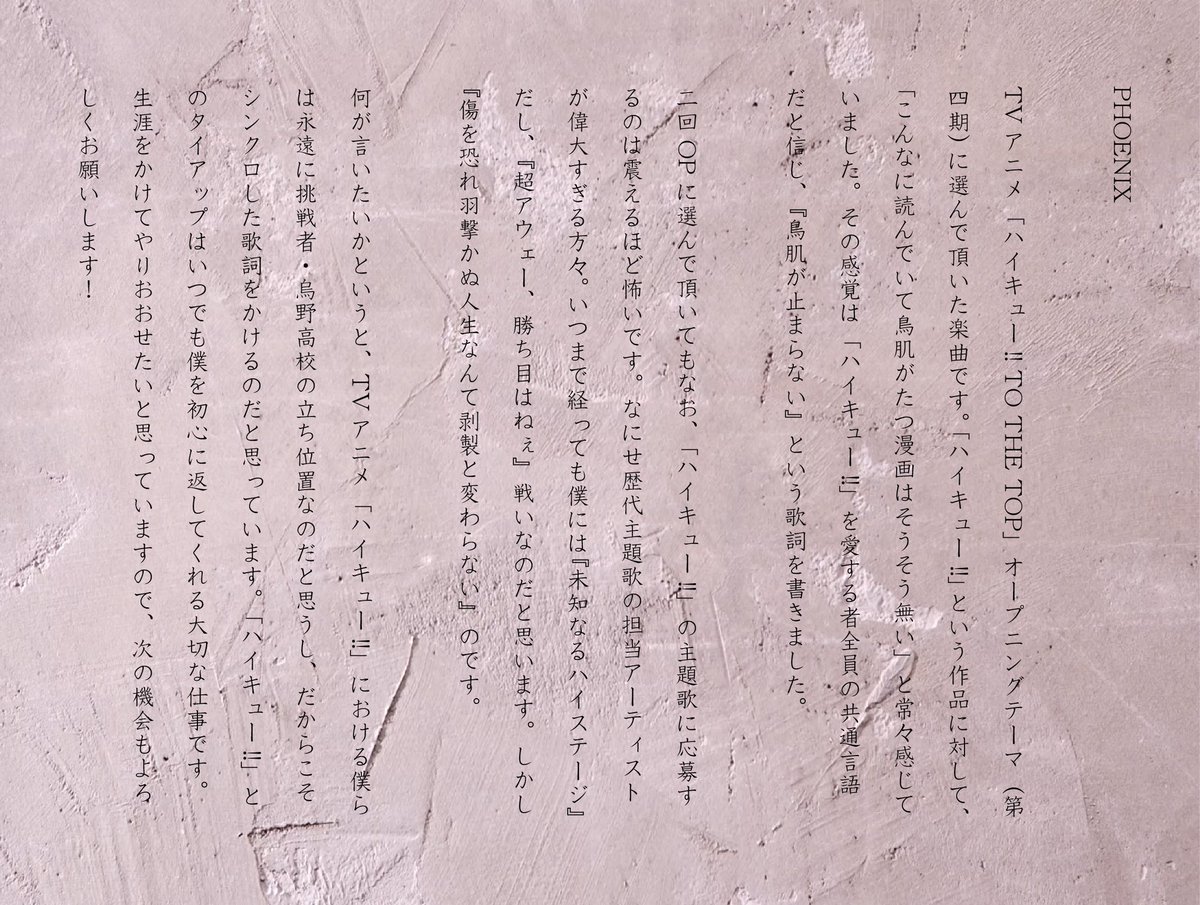 PHOENIX
TV アニメ「ハイキュー!! TO THE TOP」オープニングテーマ（第
四期）に選んで頂いた楽曲です。「ハイキュー!!」という作品に対して、
「こんなに読んでいて鳥肌がたつ漫画はそうそう無い」と常々感じて
いました。その感覚は「ハイキュー!!」を愛する者全員の共通言語
だと信じ、『鳥肌が止まらない』という歌詞を書きました。
二回 OP に選んで頂いてもなお、「ハイキュー!!」の主題歌に応募す
るのは震えるほど怖いです。なにせ歴代主題歌の担当アーティスト
が偉大すぎる方々。いつまで経っても僕には『未知なるハイステージ』
だし、『超アウェー、勝ち目はねぇ』戦いなのだと思います。しかし
『傷を恐れ羽撃かぬ人生なんて剥製と変わらない』のです。
何が言いたいかというと、TV アニメ「ハイキュー!!」における僕ら
は永遠に挑戦者・烏野高校の立ち位置なのだと思うし、だからこそ
シンクロした歌詞をかけるのだと思っています。「ハイキュー!!」と
のタイアップはいつでも僕を初心に返してくれる大切な仕事です。
生涯をかけてやりおおせたいと思っていますので、次の機会もよろ
しくお願いします！